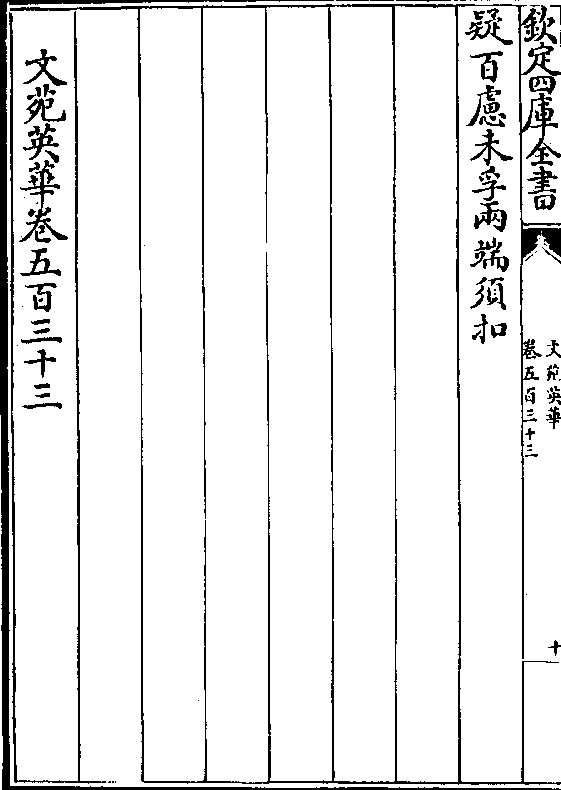 欽定四庫全書
文苑英華
卷五百三十三
十
疑百慮未孚兩端須扣
文苑英華卷五百三十三